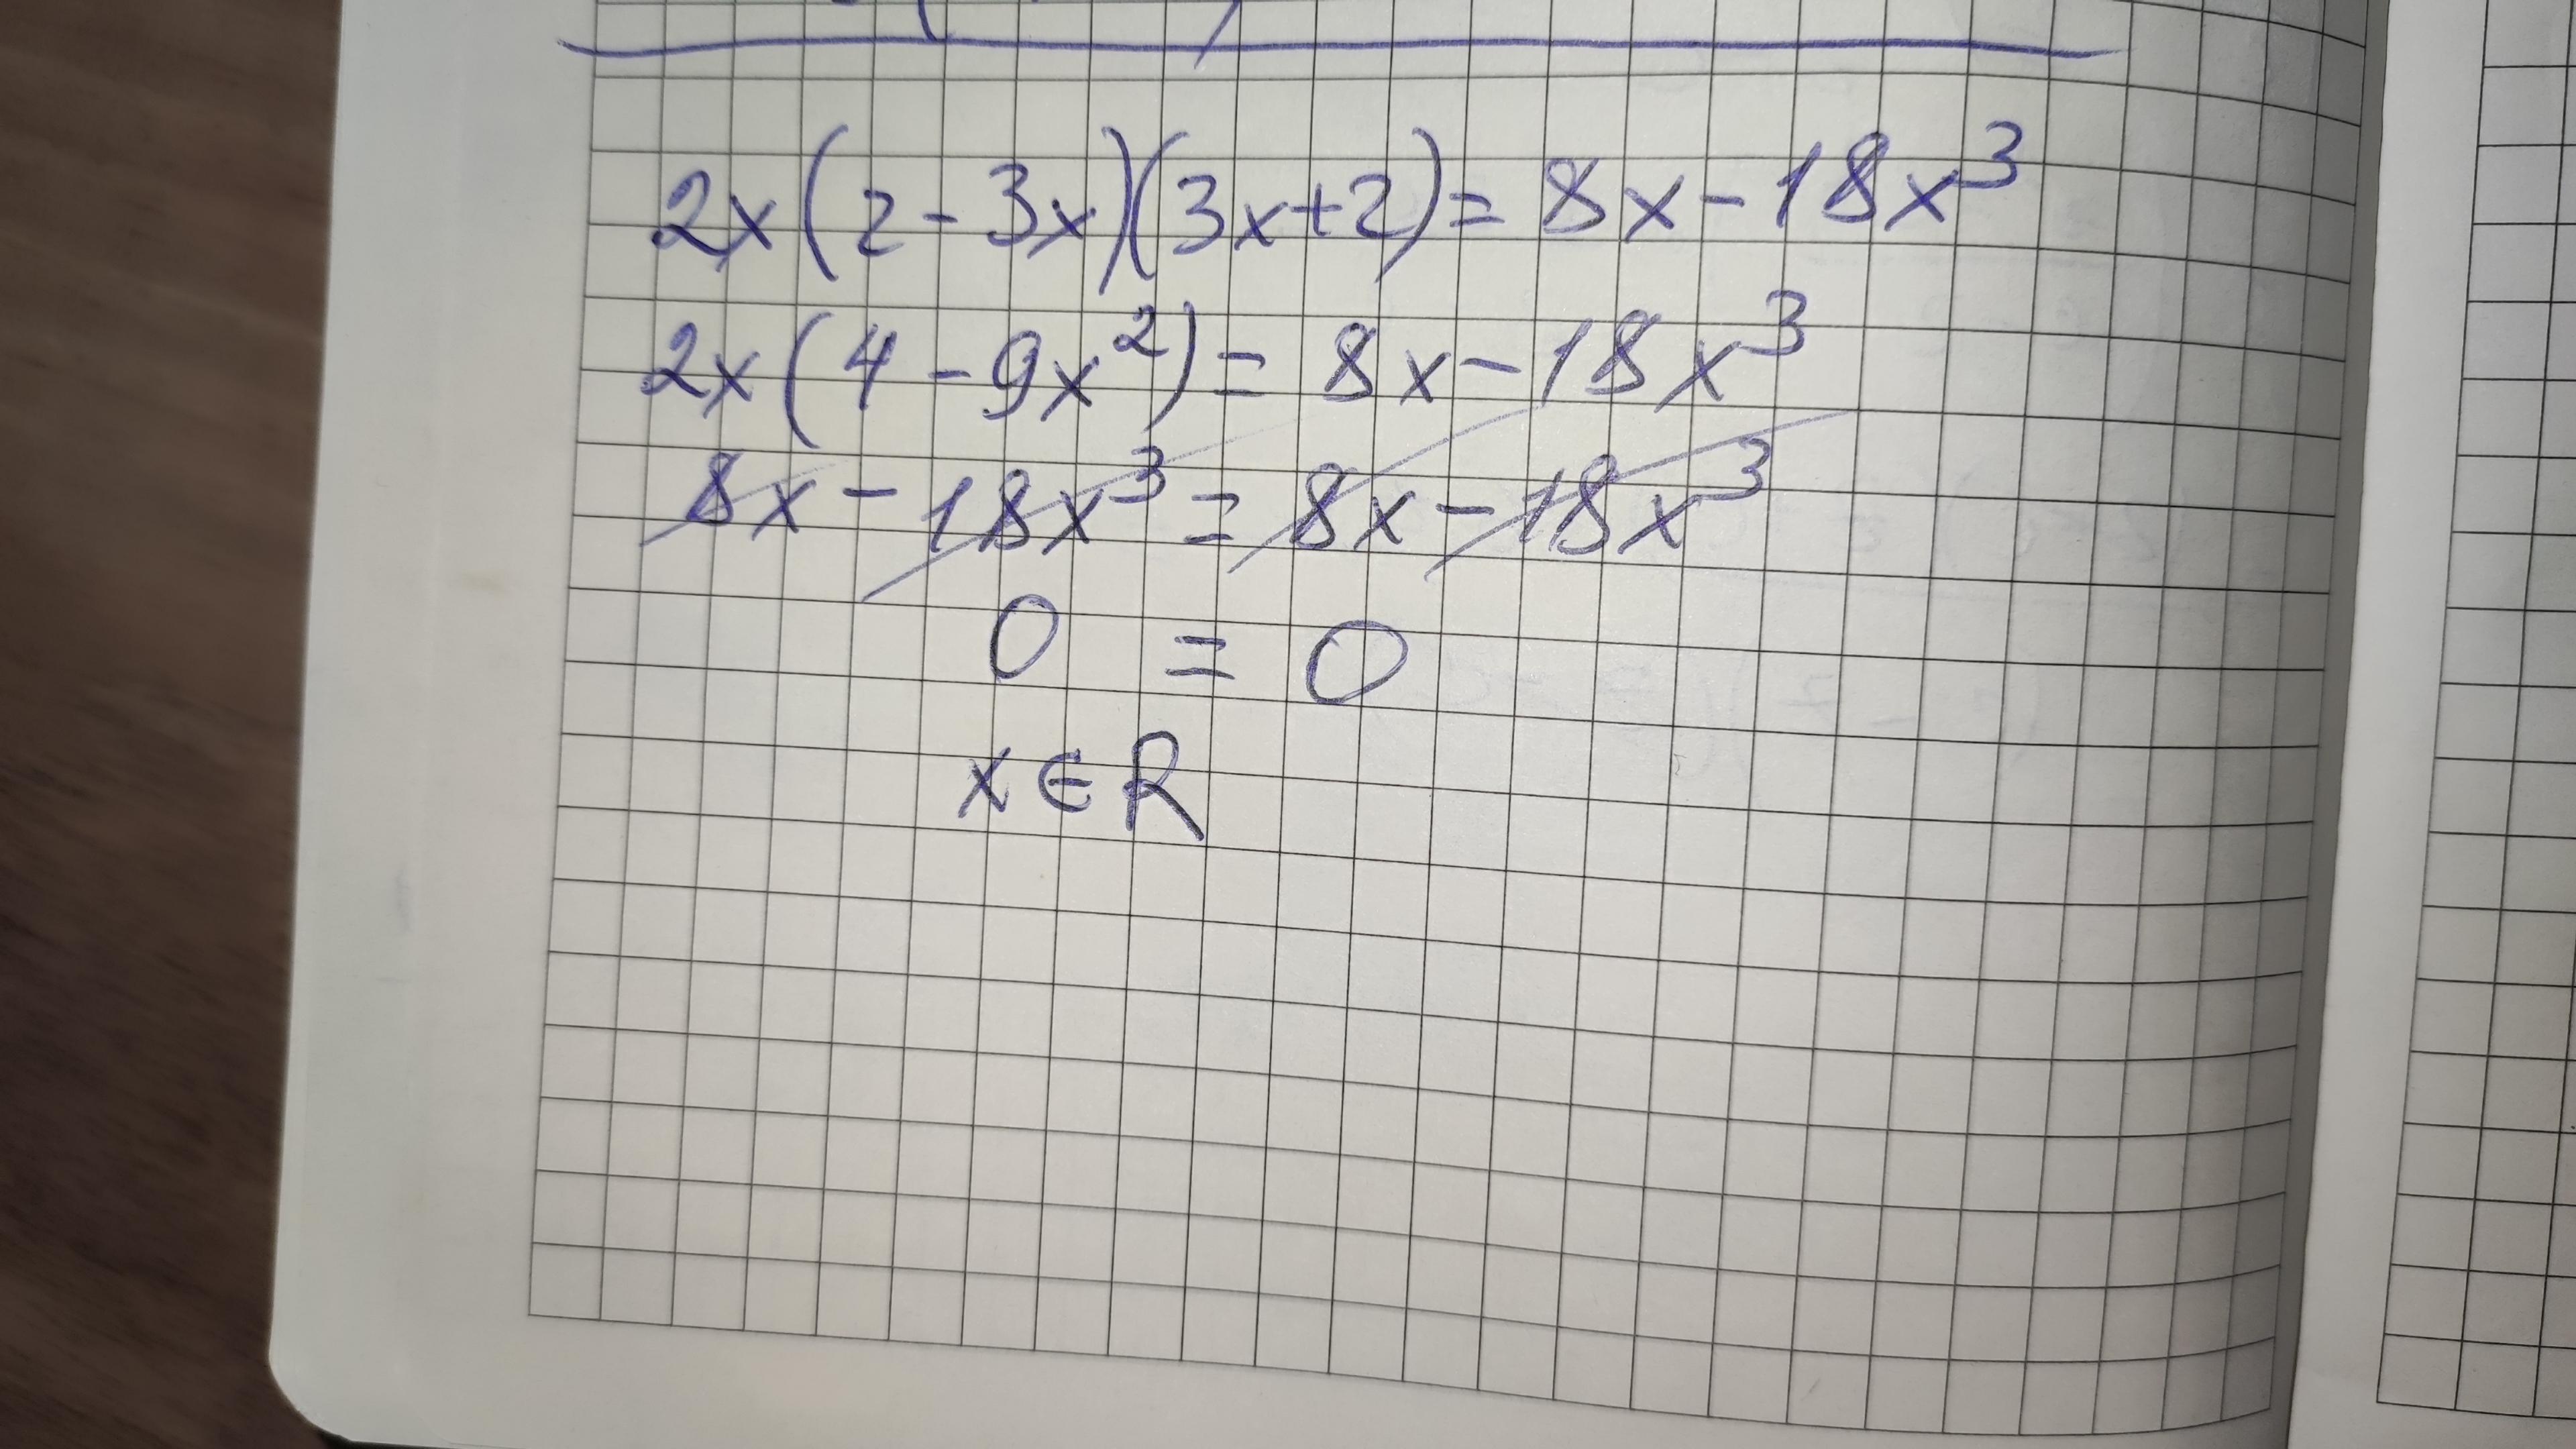 2x(2-3x)(3x+2)=8x-18x³
2x(4-9x²)=8x-18x³
8x-18x³=8x-18x³
0=0
x∈R